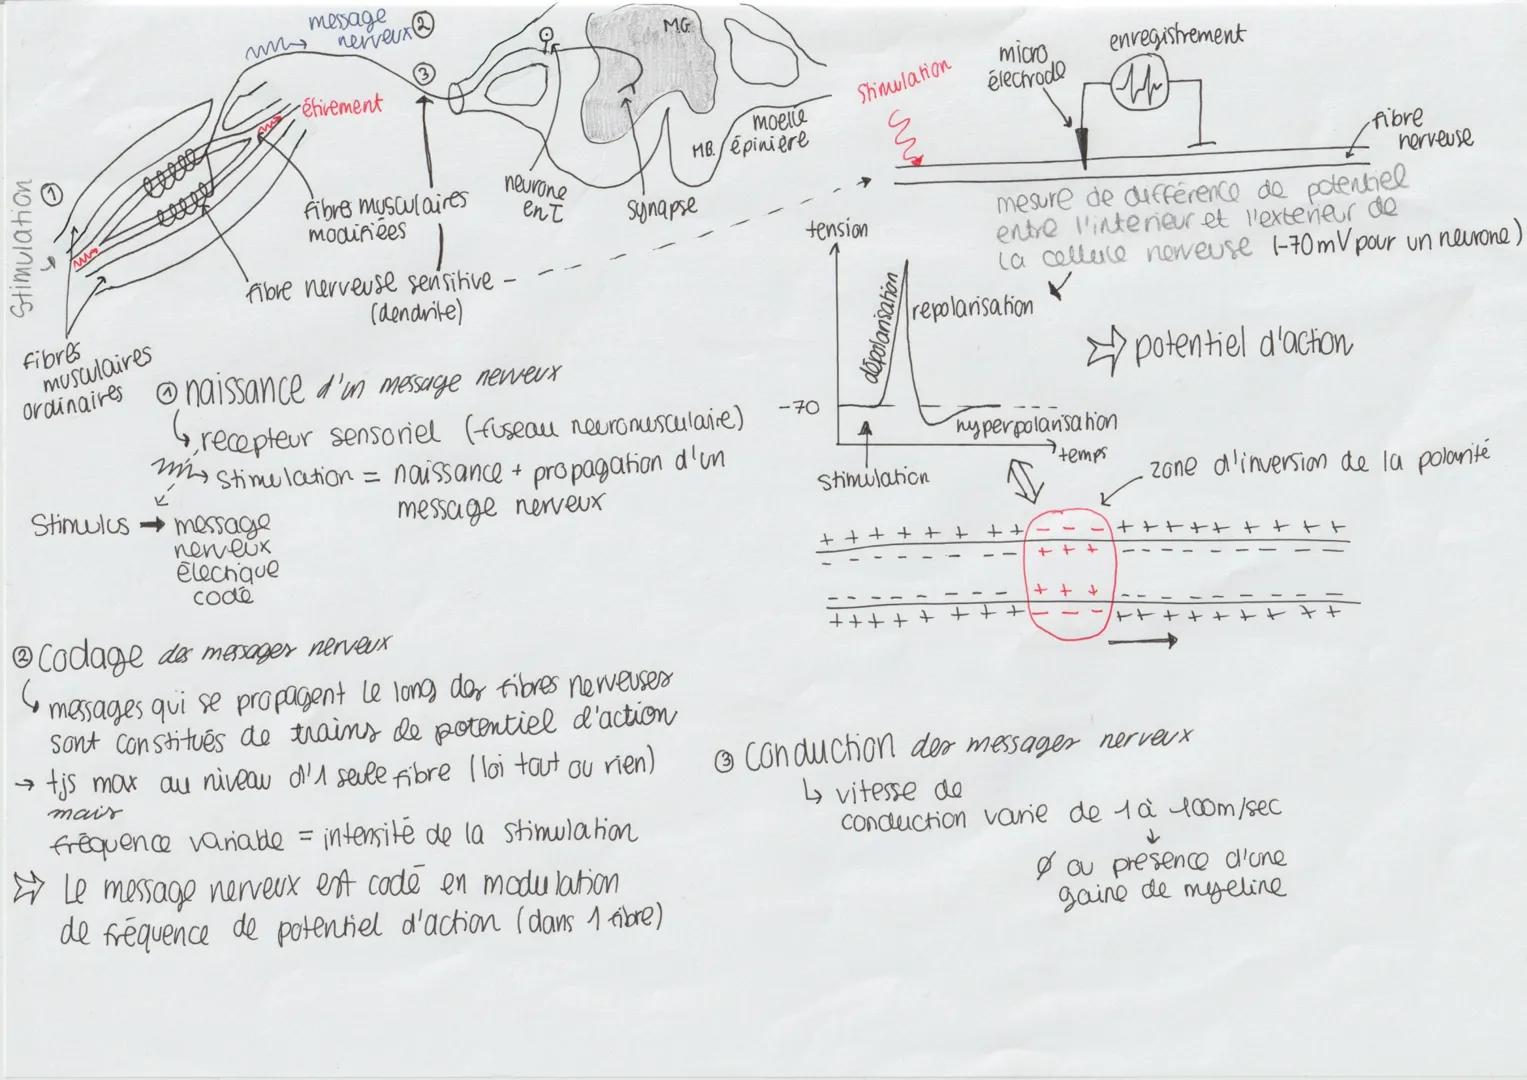 message ②
nerveux
③
étirement
Stimulation ①
fibres musculaires
modifiées
fibre nerveuse sensitive
(dendrite)
fibres
musculaires
ordinaires
neurone
en T
synapse
M.G.
M.B.
moelle
épinière
Stimulation
micro
électrode
enregistrement
fibre
nerveuse
mesure de différence de potentiel
entre l'interieur et l'exterieur de
la cellule nerveuse (-70 mV pour un neurone)
tension
dépolarisation
repolarisation
⇒ potentiel d'action
-70
hyperpolarisation
temps
stimulation
zone d'inversion de la polarité
+ + + + + + + + - - - + + + + + + + + +
- - - - - - - - + + + - - - - - - - -
- - - - - - - - + + + - - - - - - - -
+ + + + + + + + - - - + + + + + + + + +
① naissance d'un message nerveux
↳ recepteur sensoriel (fuseau neuromusculaire)
→ stimulation = naissance + propagation d'un
message nerveux
Stimulus → message
nerveux
électrique
codé
② Codage des messages nerveux
↳ messages qui se propagent le long des fibres nerveuses
sont constitués de trains de potentiel d'action
→ tjs max au niveau d'1 seule fibre (loi tout ou rien)
mais
fréquence variable = intensité de la stimulation
⇒ Le message nerveux est codé en modulation
de fréquence de potentiel d'action (dans 1 fibre)
③ Conduction des messages nerveux
↳ vitesse de
conduction varie de 1 à 100m/sec
↓
Ø ou présence d'une
gaine de myeline